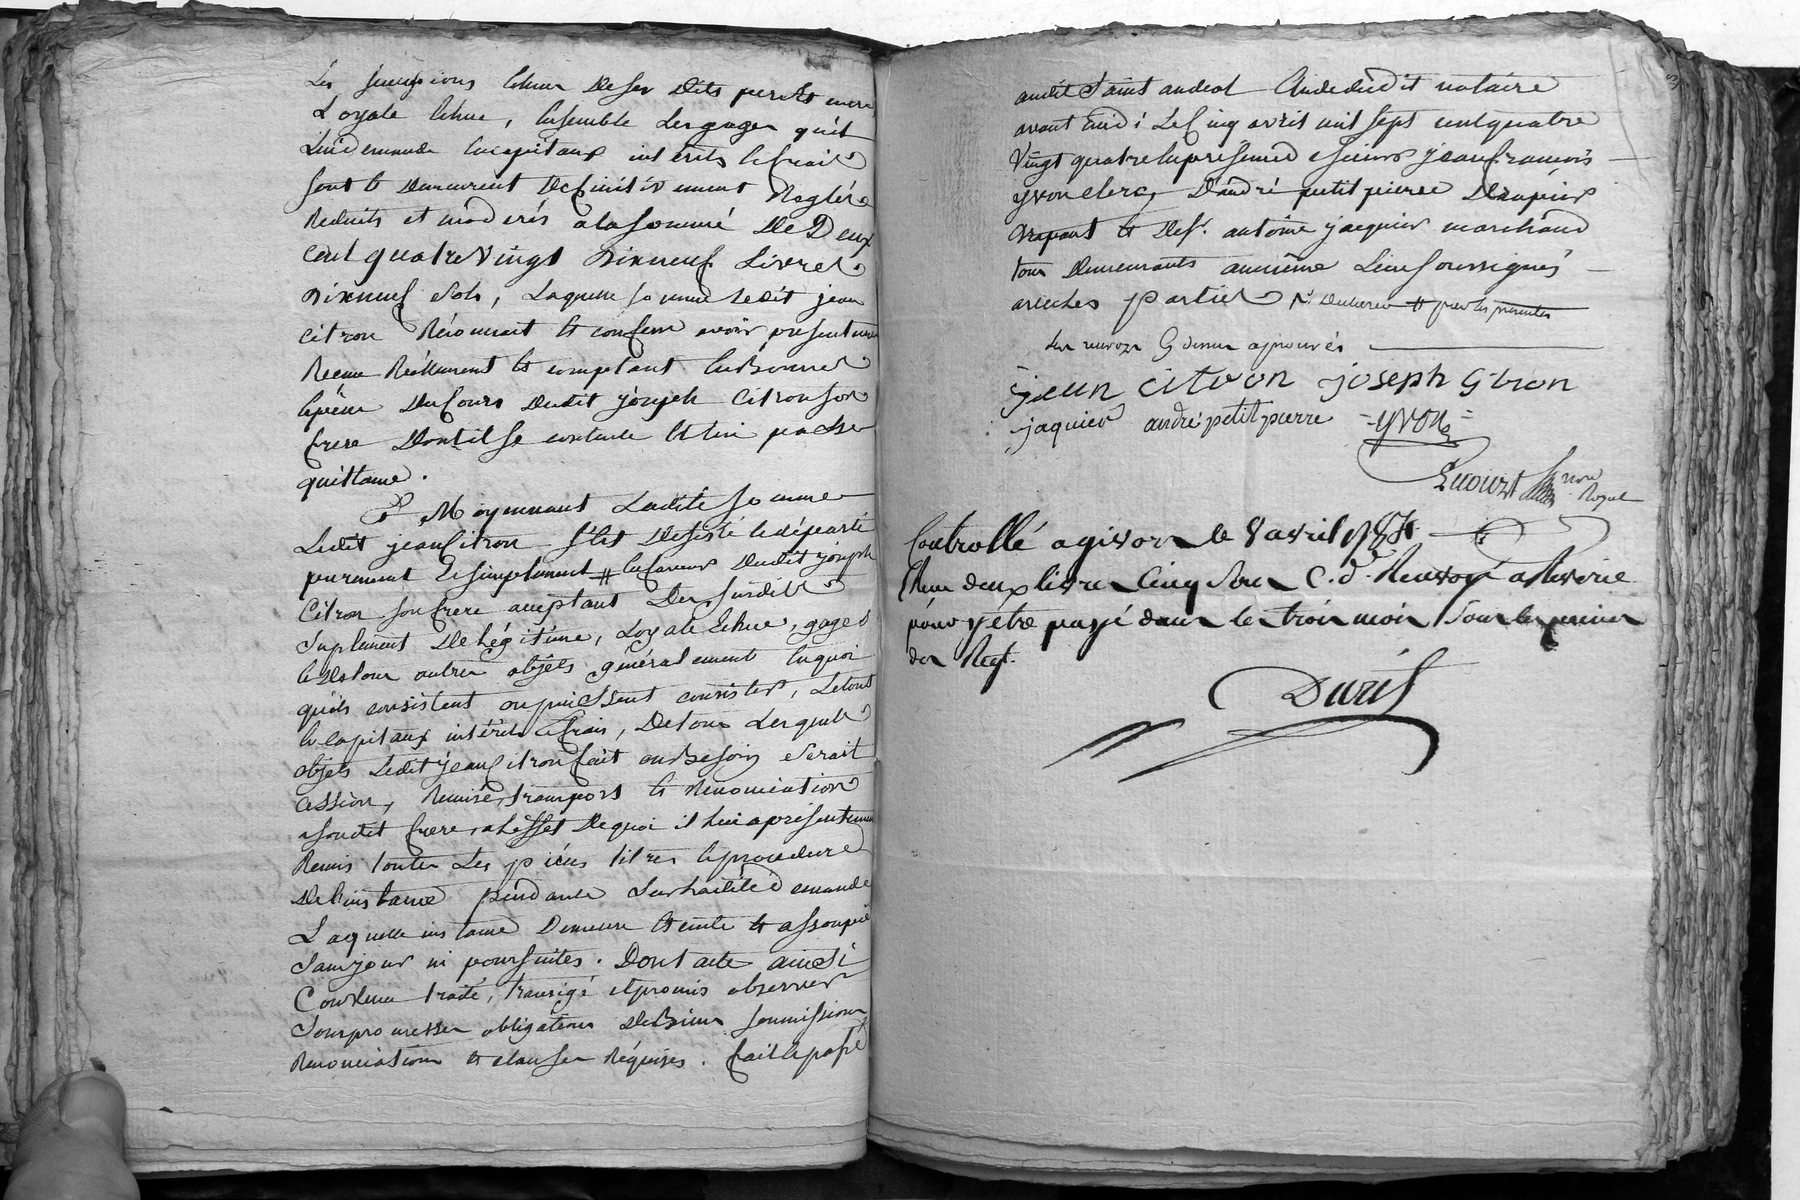 Les successions echues de ses dits père et mere
Loyale echue, Ensemble Les gages qu'il
Lui demande En capitaux intérêts et frais
sont et demeurent definitivement Reglés
Reduits et modérés a la somme De Deux
cent quatre Vingt Dixneuf Livres
Dixneuf sols, Laquelle somme ledit jean
citron Reconnait et confesse avoir presentement
Recue Réellement et comptant En Bonnes
Espèces du Cours Dudit joseph Citron son
frere Dont il se contente Et lui passe
quittance.
Et Moyennant Ladite somme
Ledit jean Citron s'est Desisté et départi
purement Et simplement # En faveur Dudit joseph
Citron son frere acceptant Des susdits
suplement De légitime, Loyale Echue, gages
et De tous autres objets généralement En quoi
qu'ils consistent ou puissent consister, Le tout
En capitaux intérêts et frais, De tous Lesquels
objets Ledit jean Citron fait au Besoin Serait
cession, Remise, transport et Renonciation
a son dit frere, a L'effet De quoi il lui a présentement
Remis toutes Les pièces titres et procedure
De L'instance pendante Sur La dite Demande
Laquelle instance Demeure Eteinte et assoupie
sans jour ni poursuites. Dont acte ainsi
Convenu traité, transigé et promis observer
Sous promesses obligations De Biens soumissions
Renonciations et clauses Réquises. fait et passé
audit Saint andeol Etude dudit notaire
avant midi Le Cinq avril mil sept cent quatre
Vingt quatre En presence de sieurs jean francois
yvon clerc, D'andré petit pierre Drapier
Drapant et De Sr. antoine jaquier marchand
tous Demeurants au même Lieu soussignés
avec les parties # par les présentes
les renvoys cy dessus approuvés
jean citron joseph Citron
jaquier andré petitpierre yvon
not. Royal
Controllé a givors le 8 avril 1784
Recu deux livres Cinq sous C. d. Renvoyé a Riverie
pour y etre payé dans les trois mois Sous les peines
des Regt.
Duril